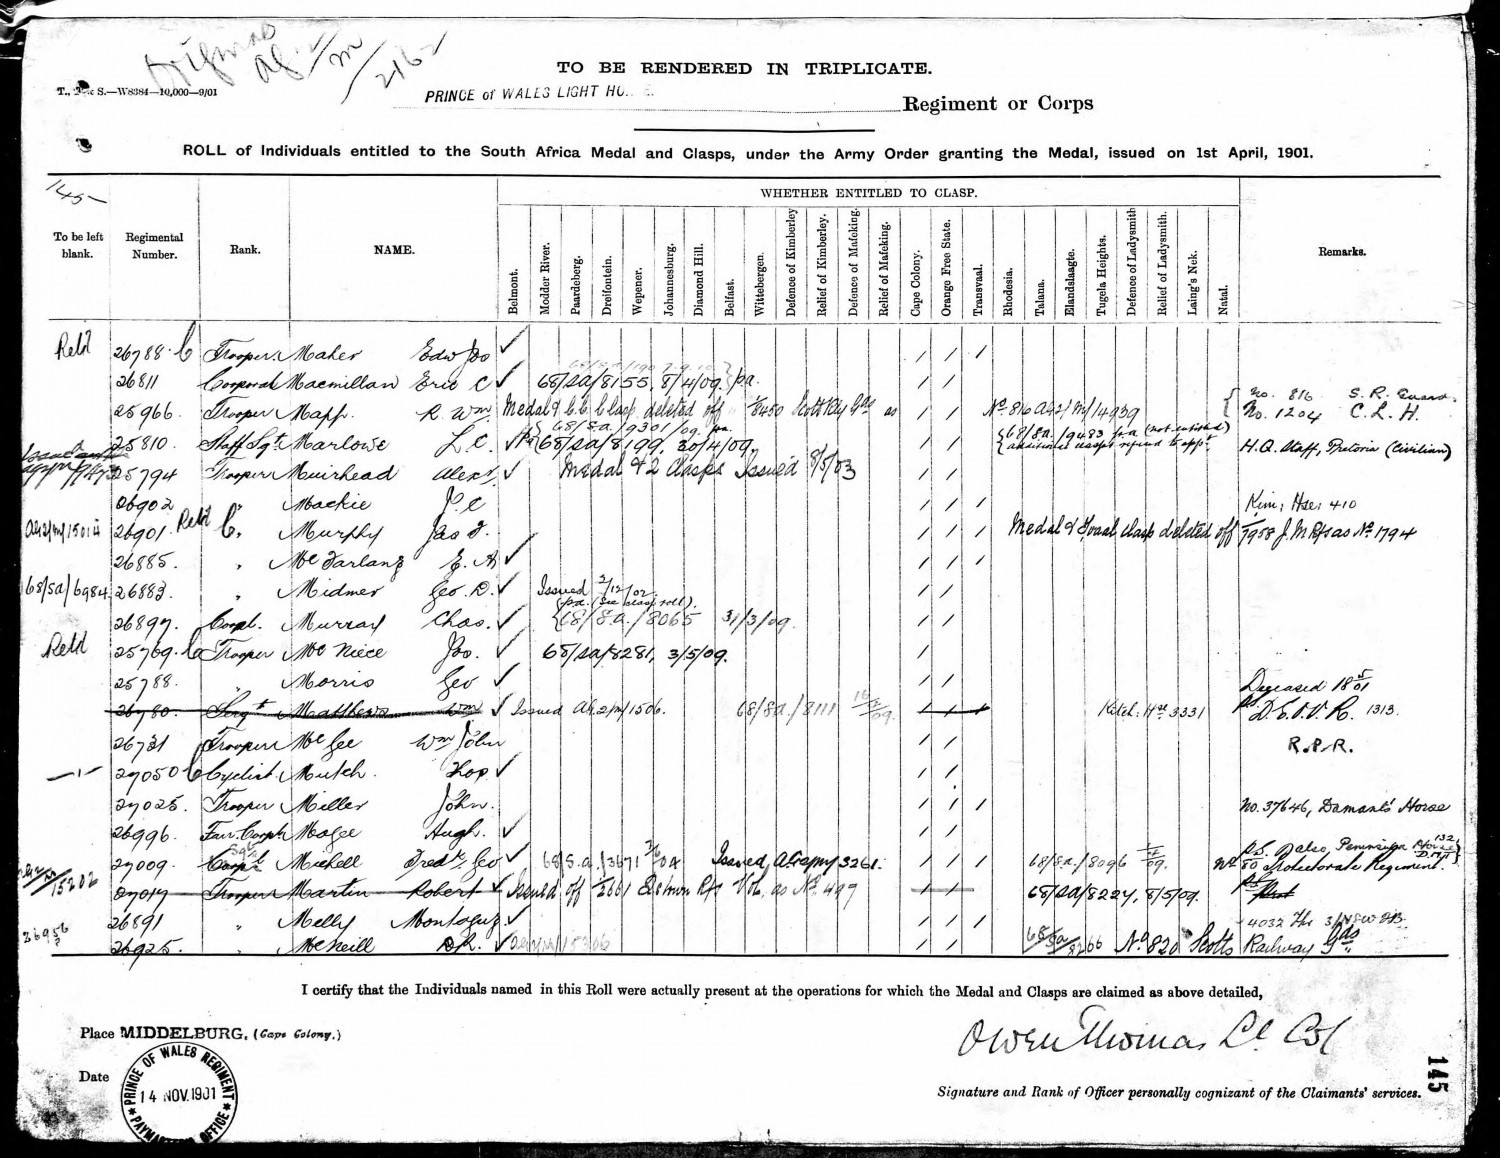 Original
TO BE RENDERED IN TRIPLICATE.
W8384—10,000—9/01
PRINCE of WALES LIGHT HO
Regiment or Corps
ROLL of Individuals entitled to the South Africa Medal and Clasps, under the Army Order granting the Medal, issued on 1st April, 1901.
145
WHETHER ENTITLED TO CLASP.
To be left blank. Regimental Number. Rank. NAME. Belmont. Modder River. Paardeberg. Dreifontein. Wepener. Johannesburg. Diamond Hill. Belfast. Wittebergen. Defence of Kimberley Relief of Kimberley. Defence of Mafeking. Relief of Mafeking. Cape Colony. Orange Free State. Transvaal. Rhodesia. Talana. Elandslaagte. Tugela Heights. Defence of Ladysmith Relief of Ladysmith. Laing's Nek. Natal. Remarks.
Retd 26788 C Trooper Maher Edw Jos ✓ / / /
26811 Corporal Macmillan Eric C ✓ 68/SA/8155, 8/4/09. pa. / /
25966. Trooper Mapp. R. Wm Medal & C.C. Clasp deleted off 8450 Scott Rly Gds as / / No 816 AG2/M/14939 { No. 816 S.R. Guards.
No. 1204 C.L.H.
{68/S.a./9301/09. pa.
25810. Staff Sgt Marlowe L.C. ✓ 68/SA/8199, 30/4/09. / / {68/8a./9483 pa (not entitled)
additional clasps refused to appt. H.Q. Staff, Pretoria (Civilian)
25794 Trooper Muirhead Alexr. ✓ Medal & 2 Clasps Issued 8/5/03 / /
26902 " Mackie J.C / / / Kim: Hse: 410
AG2/M/15014 26901. Retd C. Murphy Jas F. / / / Medal & Tvaal clasp deleted off 7958 J. M Rfs as No 1794
26885. " McFarlang E. A ✓ / / /
68/SA/6984 26883. " Midmer Geo. D. ✓ Issued 2/12/02. / /
pa. (see clasp roll).
26897. Corpl. Murray Chas. ✓ {68/S.a./8065 31/3/09. / /
Retd 25769. C Trooper McNiece Jas. ✓ 68/SA/8281, 3/5/09. /
25788. " Morris Geo ✓ / / Deceased 18 5/01
26780. Sergt Matthews Wm ✓ Issued AG2/M/1506. 68/8a./8111 16/4/09. / / / Kitch: Hse 3331 D.E.O.V.R. 1313.
26731 Trooper McGee Wm John / / R.P.R.
27050 C Cyclist Mutch. Thos ✓ / /
27025. Trooper Miller John. / / / No. 37646, Damant's Horse
26996. Farr. Corpl Magee Hugh. ✓ / /
27009. Corpl Michell Fredk. Geo ✓ 68/S.a./3671 Issued, AG2/M/3261. / / 68/8a./8096 /09. No 80 Protectorate Regiment.
15202 27017 Trooper Martin Robert ✓ Issued off 2661 Vol. as No. 497 / / 68/SA/8224, 8/5/09.
26891 " Melly Montague ✓ / / 4032 3/NSW I.B.
26925. " McNeill ✓ / / 68/SA/8266 No 820 Scotts Railway Gds
I certify that the Individuals named in this Roll were actually present at the operations for which the Medal and Clasps are claimed as above detailed,
Place MIDDELBURG, (Cape Colony.)
Owen Thomas Lt Col
Date
PRINCE OF WALES REGIMENT
14 NOV. 1901
PAYMASTERS OFFICE
Signature and Rank of Officer personally cognizant of the Claimants' services.
145